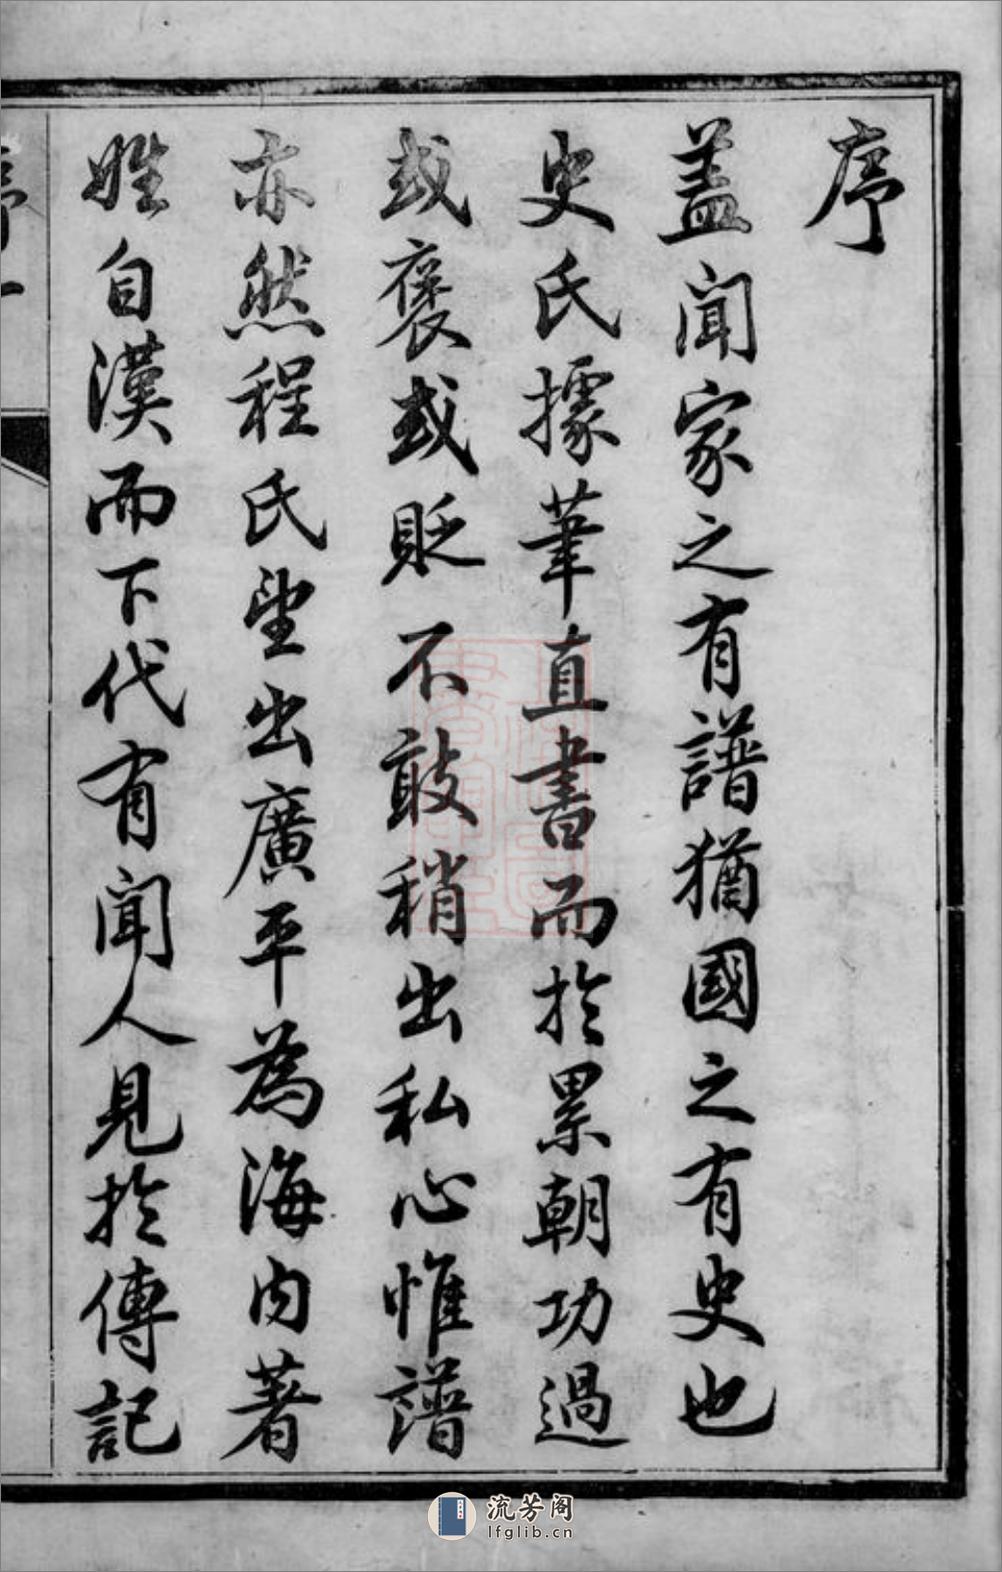 序
蓋聞家之有譜猶國之有史也
史氏據筆直書而於累朝功過
或褒或貶不敢稍出私心惟譜
亦然程氏望出廣平為海內著
姓自漢而下代有聞人見於傳記
序一
流芳阁
lfglib.cn